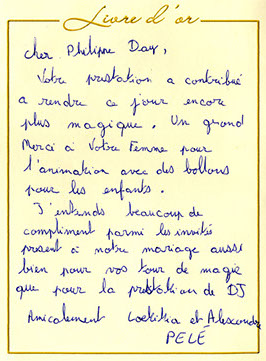 Livre d'or
Cher Philippe Day,
Votre prestation a contribué
a rendre ce jour encore
plus magique. Un grand
Merci à Votre Femme pour
l'animation avec des ballons
pour les enfants.
J'entends beaucoup de
compliment parmi les invités
présent à notre mariage aussi
bien pour vos tour de magie
que pour la prestation de DJ
Amicalement Laetitia et Alexandre
PELÉ